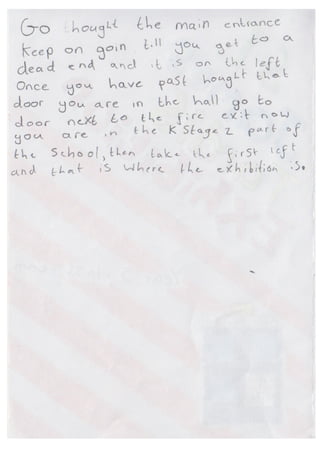 Go thought the main entrance
keep on goin till you get to a
dead end and it is on the left
Once you have past hought that
door you are in the hall go to
door next to the fire exit now
you are in the K Stage 2 part of
the School, then take the first left
and that is where the exhibition is.